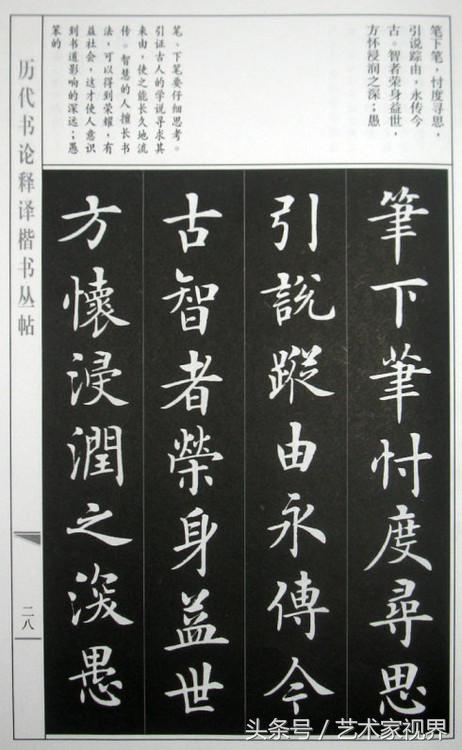 笔下笔，忖度寻思，
引说踪由，永传今
古。智者荣身益世，
方怀浸润之深；愚
笔、下笔要仔细思考。
引证古人的学说寻求其
来由，使之能长久地流
传。智慧的人擅长书
法，可以得到荣耀，有
益社会，这才使人意识
到书道影响的深远；愚
笨的
筆下筆忖度尋思
引說蹤由永傳今
古智者榮身益世
方懷浸潤之深愚
历代书论释译楷书丛帖
二八
头条号／艺术家视界